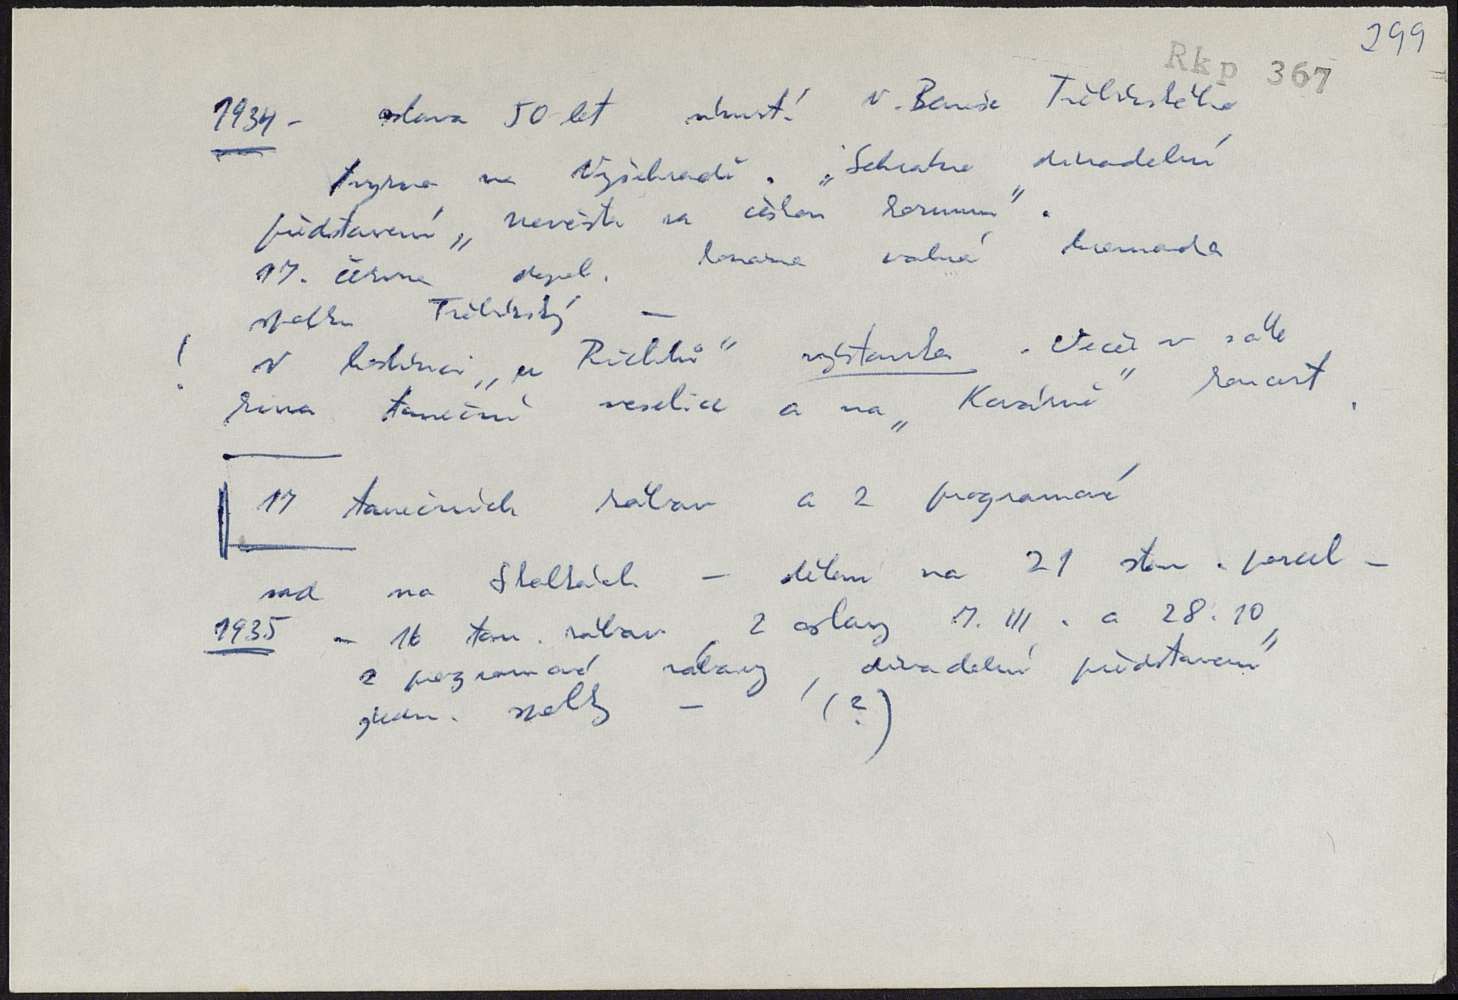 299
Rkp 367
1934 - oslava 50 let úmrtí V. Beneše Třebízského
tryzna na Vyšehradě. „Sehráno divadelní
představení „Nevěsta za českou korunu".
17. června dopol. konána valná hromada
spolku Třebízský -
! V hostinci „u Richtrů" výstavka. Večer v sále
kina taneční veselice a na „Kavárně" koncert.
17 tanečních zábav a 2 programové
sad na Skalkách - dělen na 21 stav. parcel -
1935 - 16 tan. zábav, 2 oslavy 7. III. a 28. 10,
2 programové zábavy, divadelní představení
jedn. spolky - (?)